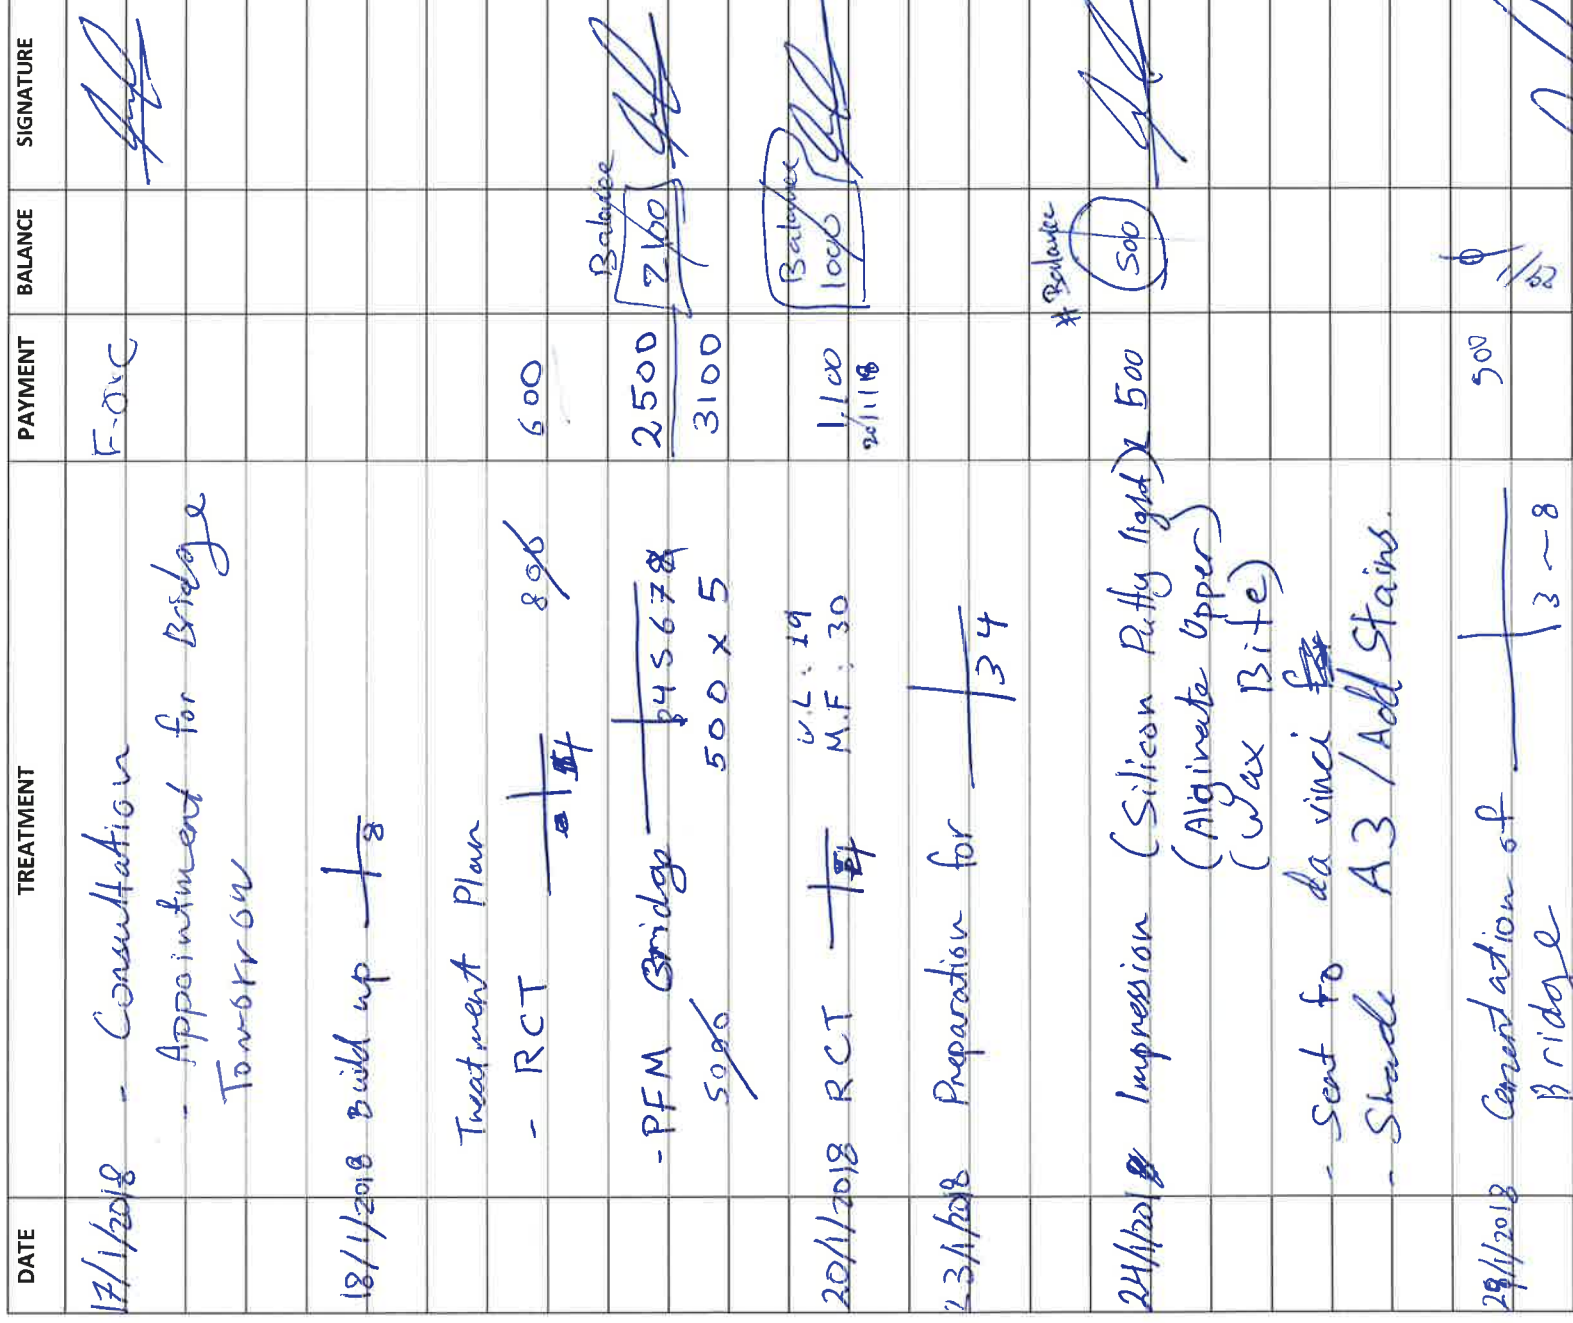 DATE TREATMENT PAYMENT BALANCE SIGNATURE
17/1/2018 - Consultation F.O.C
- Appointment for Bridge
Tomorrow
18/1/2018 Build up 8
Treatment Plan
- RCT 800 600
Balance
- PFM Bridge 45678 2500 2100
5000 500 x 5 3100
W.L: 19 Balance
20/1/2018 RCT M.F: 30 1,100 1000
20/1/18
23/1/2018 Preparation for 34
# Balance
24/1/2018 Impression (Silicon Putty light) 500 500
(Alginate Upper)
(Wax Bite)
- Sent to da vinci
- Shade A3 / Add Stains.
28/1/2018 Cementation of 500
Bridge 3~8